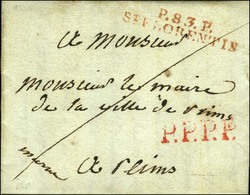 P.83.P.
St FLORENTIN
a Monsieur
monsieur le maire
de la ville de reims
P.P.P.P.
marne
a reims